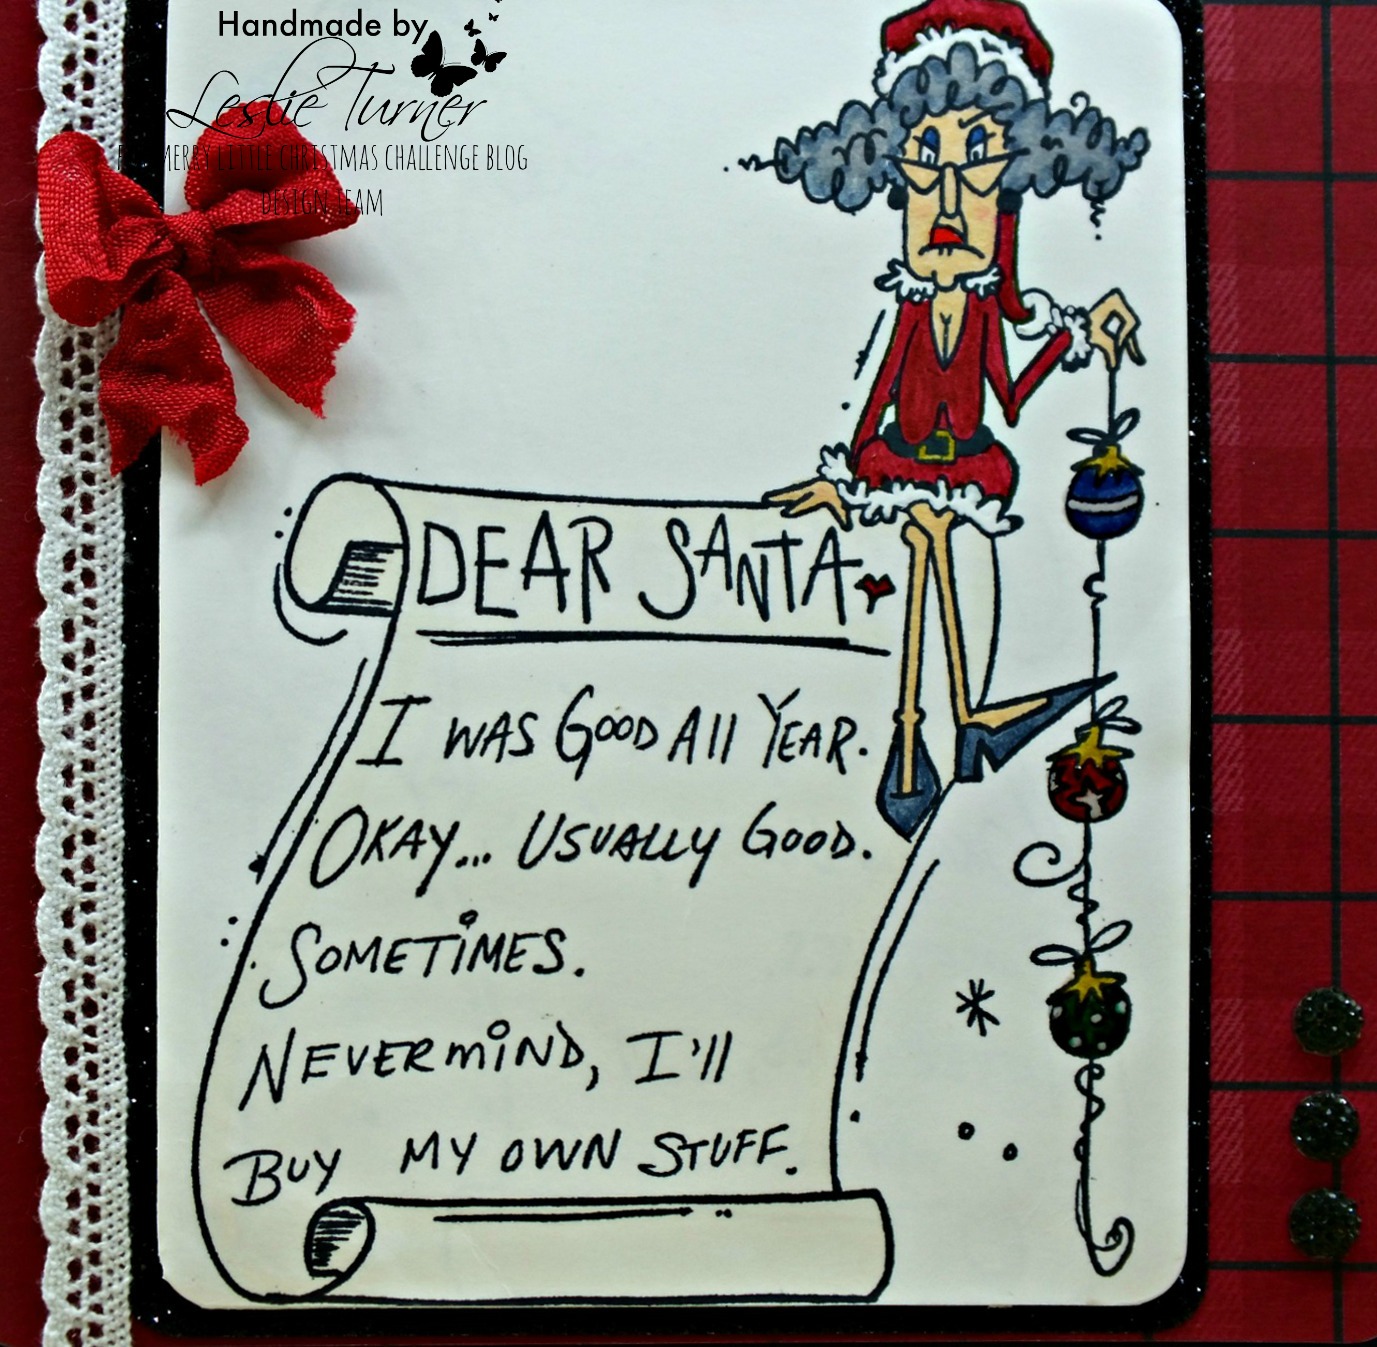 Handmade by
Leslie Turner
MERRY LITTLE CHRISTMAS CHALLENGE BLOG
DESIGN TEAM
DEAR SANTA
I WAS GOOD All YEAR.
OKAY... USUALLY GOOD.
SOMETIMES.
NEVERMIND, I'll
BUY MY OWN STUFF.